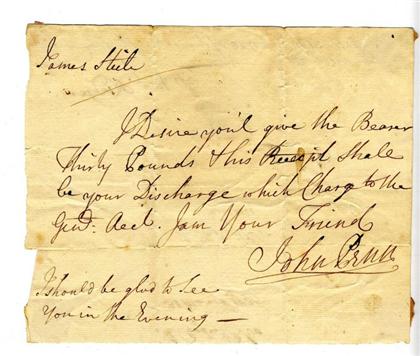 James Steele
I Desire you'l give the Bearer
Thirty Pounds & this Receipt Shall
be your Discharge which Charge to the
Gen.ll Acct. I am Your Friend
John Penn
I should be glad to See
You in the Evening —